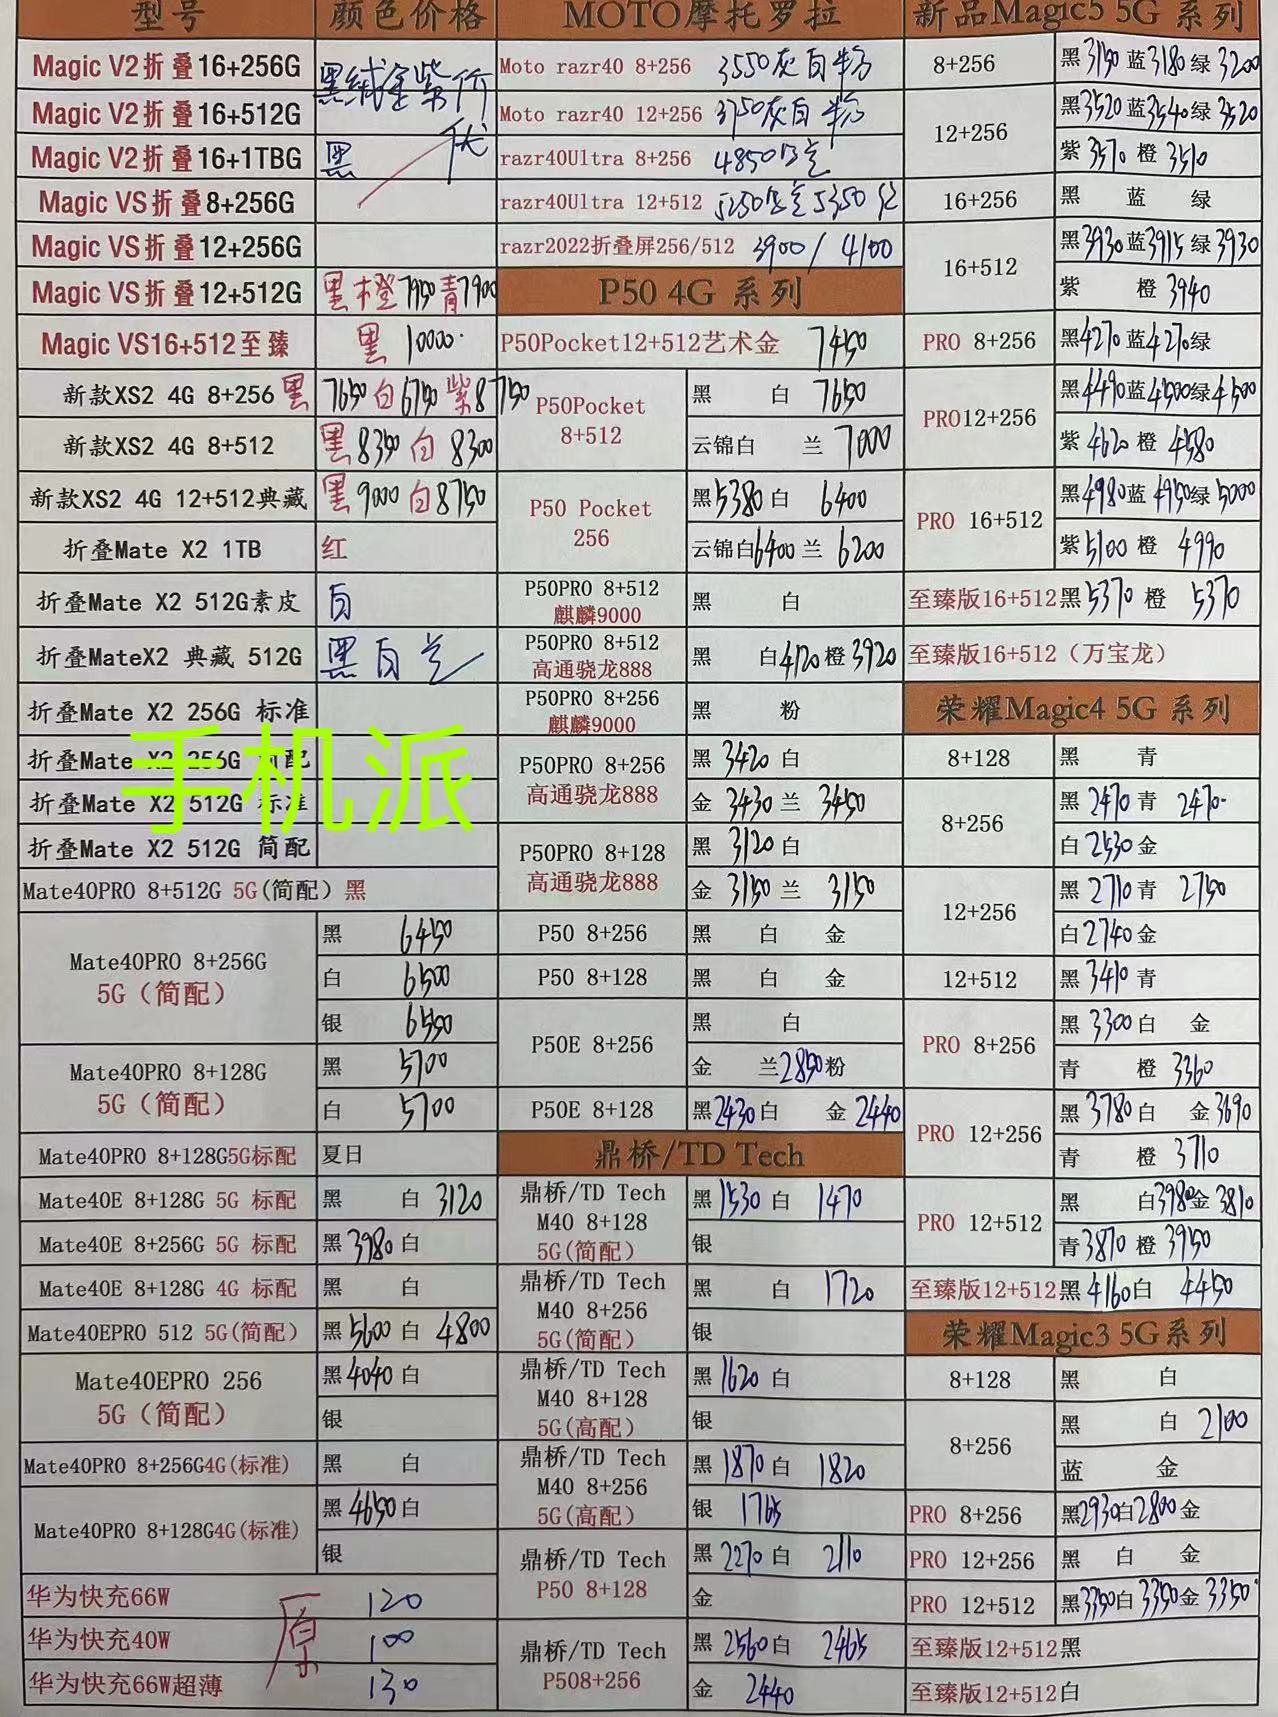 型号 颜色价格
Magic V2折叠16+256G 黑绒金紫价
Magic V2折叠16+512G
Magic V2折叠16+1TBG 黑 优
Magic VS折叠8+256G
Magic VS折叠12+256G
Magic VS折叠12+512G 黑橙7950青7900
Magic VS16+512至臻 黑 10000
新款XS2 4G 8+256 黑 7650白6750紫8750
新款XS2 4G 8+512 黑8350白8300
新款XS2 4G 12+512典藏 黑9000白8750
折叠Mate X2 1TB 红
折叠Mate X2 512G素皮 白
折叠MateX2 典藏 512G 黑白兰
折叠Mate X2 256G 标准
折叠Mate X2 256G 简配
折叠Mate X2 512G 标准
折叠Mate X2 512G 简配
手机派
Mate40PRO 8+512G 5G(简配）黑
Mate40PRO 8+256G
5G（简配）
黑 6450
白 6500
银 6550
Mate40PRO 8+128G
5G（简配）
黑 5700
白 5700
Mate40PRO 8+128G5G标配 夏日
Mate40E 8+128G 5G 标配 黑 白 3120
Mate40E 8+256G 5G 标配 黑3980白
Mate40E 8+128G 4G 标配 黑 白
Mate40EPRO 512 5G(简配） 黑5600白 4800
Mate40EPRO 256
5G（简配）
黑4040白
银
Mate40PRO 8+256G4G(标准) 黑 白
Mate40PRO 8+128G4G(标准)
黑4650白
银
华为快充66W 120
华为快充40W 100
华为快充66W超薄 130
原
MOTO摩托罗拉
Moto razr40 8+256 3550灰白粉
Moto razr40 12+256 3750灰白粉
razr40Ultra 8+256 4850
razr40Ultra 12+512 5250 5350
razr2022折叠屏256/512 3900/4100
P50 4G 系列
P50Pocket12+512艺术金 7450
P50Pocket
8+512
黑 白 7650
云锦白 兰 7000
P50 Pocket
256
黑5380白 6400
云锦白6400兰 6200
P50PRO 8+512
麒麟9000
黑 白
P50PRO 8+512
高通骁龙888
黑 白4120橙3920
P50PRO 8+256
麒麟9000
黑 粉
P50PRO 8+256
高通骁龙888
黑 3420白
金 3430兰 3450
P50PRO 8+128
高通骁龙888
黑 3120白
金 3150兰 3150
P50 8+256 黑 白 金
P50 8+128 黑 白 金
P50E 8+256
黑 白
金 兰2850粉
P50E 8+128 黑2430白 金2440
鼎桥/TD Tech
鼎桥/TD Tech
M40 8+128
5G(简配）
黑1530白 1470
银
鼎桥/TD Tech
M40 8+256
5G(简配）
黑 白 1720
银
鼎桥/TD Tech
M40 8+128
5G(高配）
黑1620白
银
鼎桥/TD Tech
M40 8+256
5G(高配）
黑1870白 1820
银 1765
鼎桥/TD Tech
P50 8+128
黑2270白 2110
金
鼎桥/TD Tech
P508+256
黑2560白 2465
金 2440
新品Magic5 5G 系列
8+256 黑3150蓝3180绿3200
12+256
黑3520蓝3540绿3520
紫3570橙3510
16+256 黑 蓝 绿
16+512
黑3930蓝3915绿3930
紫 橙3940
PRO 8+256 黑4270蓝4270绿
PRO12+256
黑4490蓝4500绿4500
紫4620橙4580
PRO 16+512
黑4980蓝4950绿5000
紫5100橙 4990
至臻版16+512黑5370橙 5370
至臻版16+512（万宝龙）
荣耀Magic4 5G 系列
8+128 黑 青
8+256
黑2470青 2470
白2530金
12+256
黑2710青 2750
白2740金
12+512 黑3410青
PRO 8+256
黑3300白 金
青 橙 3360
PRO 12+256
黑3780白 金3690
青 橙 3710
PRO 12+512
黑 白3980金3810
青3870橙3950
至臻版12+512黑4160白 4450
荣耀Magic3 5G系列
8+128 黑 白
8+256
黑 白 2100
蓝 金
PRO 8+256 黑2930白2800金
PRO 12+256 黑 白 金
PRO 12+512 黑3350白3350金3350
至臻版12+512黑
至臻版12+512白